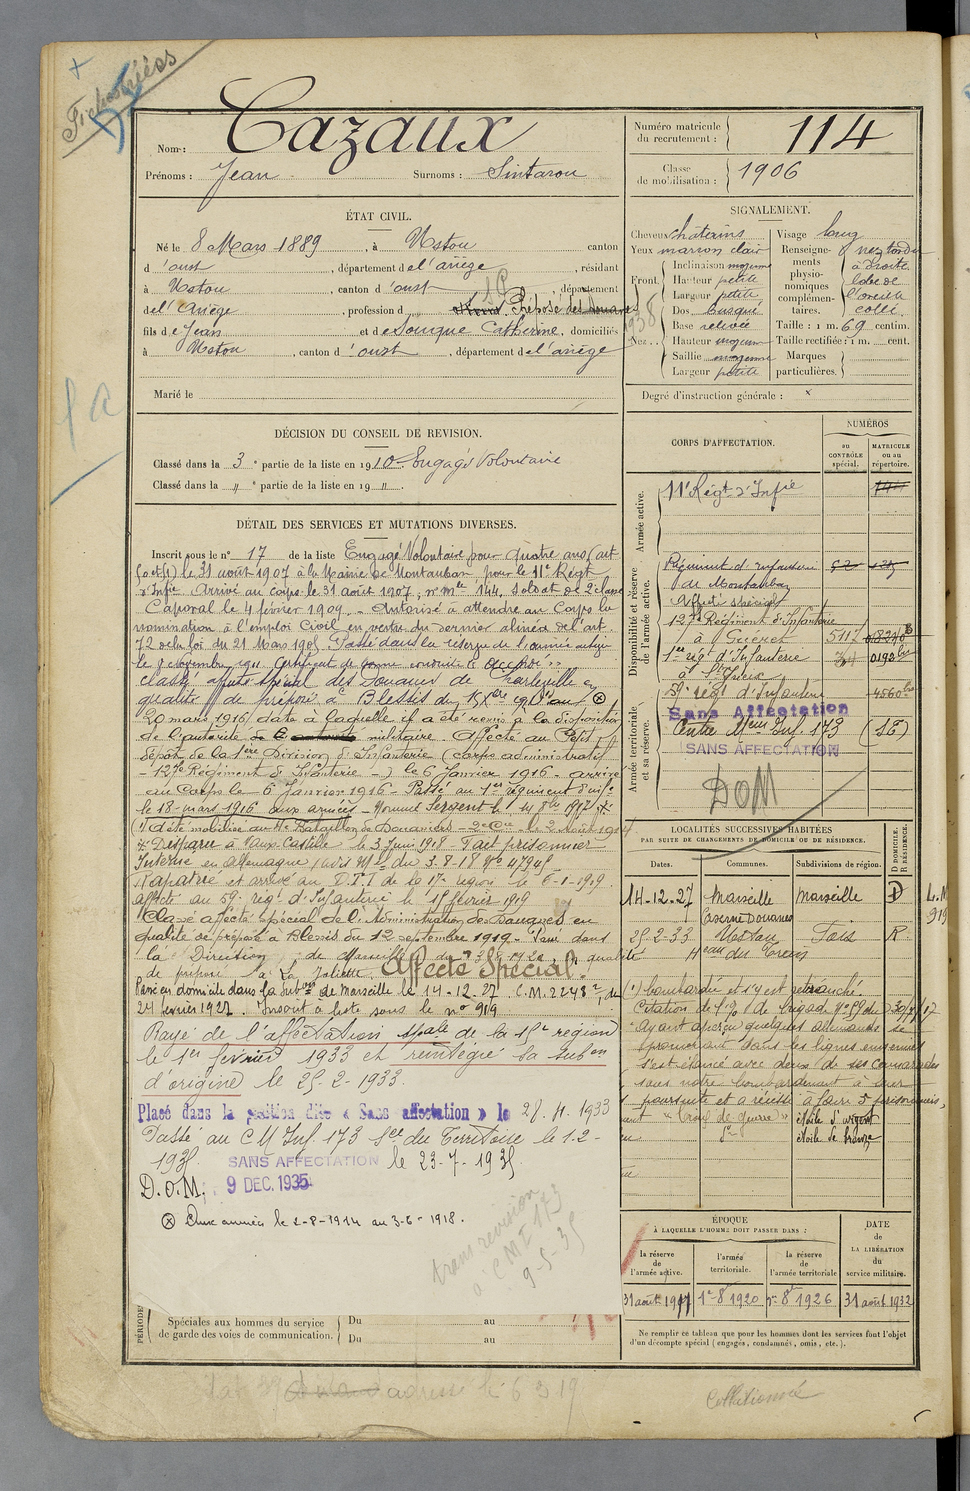 Fichostées
Nom : Cazaux
Prénoms : Jean Surnoms : Sintarou
ÉTAT CIVIL.
Né le 8 Mars 1889, à Ustou canton
d'oust, département de l'ariège, résidant
à Ustou, canton d'oust, département
de l'Ariège, profession de Préposé des Douanes
fils de Jean et de Souque Catherine, domiciliés
à Ustou, canton d'oust, département de l'ariège
Marié le
DÉCISION DU CONSEIL DE REVISION.
Classé dans la 3e partie de la liste en 1910 Engagé Volontaire
Classé dans la " e partie de la liste en 19 " .
DÉTAIL DES SERVICES ET MUTATIONS DIVERSES.
Inscrit sous le n° 17 de la liste Engagé Volontaire pour quatre ans (art
50 et 51) le 31 août 1907 à la Mairie de Montauban pour le 11e Régt
d'Infie Arrivé au corps le 31 août 1907, n° mle 144, soldat de 2e classe
Caporal le 4 février 1909. - Autorisé à attendre au Corps la
nomination à l'emploi Civil en vertu du dernier alinéa de l'art.
72 de la loi du 21 Mars 1905 Passé dans la réserve de l'armée active
le 7 novembre 1911. Certificat de bonne conduite accordé
classé affecté spécial des Douanes de Charleville en
qualité de préposé à Blessis du
20 mars 1916, date à laquelle il a été remis à la disposition
de l'autorité militaire. Affecté au Petit
dépôt de la 1ère Division d'Infanterie (corps administratif
- 127e Régiment d'Infanterie -) le 6 Janvier 1916 - arrivé
au Corps le 6 Janvier 1916 - Passé au 1er régiment d'inf.
le 18 mars 1916 aux armées - Nommé Sergent le 14 8bre 1917
(1) a été mobilisé au Bataillon de Douaniers 2 Août 1914
Disparu à Vaux-Castille le 3 Juin 1918 - Fait prisonnier
Interné en Allemagne (avis Mel du 3-8-18 N° 47945
Rapatrié et arrivé au D.T.I de la 17e région le 6-1-1919.
affecté au 59e rég. d'Infanterie le 15 février 1919
Classé affecté spécial de l'Administration des Douanes en
qualité de préposé à Blessis du 12 septembre 1919. Passé dans
la Direction de Marseille en qualité
de préposé à La Joliette Affecté Spécial.
Passé en domicile dans la Subon de Marseille le 14-12-27. C.M. 2248 du
24 février 1927. Inscrit à liste sous le n° 919
Rayé de l'affectation spale de la 15e région
le 1er février 1933 et réintégré la subon
d'origine le 25-2-1933.
Placé dans la position dite « Sans affectation » le 28.11.1933
Passé au CM Inf. 173 Son du Territoire le 1-2-
1935. SANS AFFECTATION le 23-7-1935
D.O.M. 9 DEC. 1935
⊗ Aux armées le 2-8-1914 au 3-6-1918.
trans revision
à CMI 173
9-5-35
PÉRIODES
Spéciales aux hommes du service
de garde des voies de communication.
Du au
Du au
adresse le 6 3 19
Numéro matricule
du recrutement : 114
Classe
de mobilisation : 1906
SIGNALEMENT.
Cheveux châtains
Yeux marron clair
Front. Inclinaison moyenne
Hauteur petite
Largeur petite
Nez. . Dos busqué
Base relevée
Hauteur moyenne
Saillie moyenne
Largeur petite
Visage long
Renseignements physionomiques complémentaires.
nez tordu
à droite
lobe de
l'oreille
collé.
Taille : 1 m. 69 centim.
Taille rectifiée : 1 m. cent.
Marques
particulières.
Degré d'instruction générale :
CORPS D'AFFECTATION.
NUMÉROS
au
CONTRÔLE
spécial.
MATRICULE
ou au
répertoire.
Armée active.
11e Régt d'Infie 144
Disponibilité et réserve
de l'armée active.
Régiment d'infanterie
de Montauban
Affecté spécial
127e Régiment d'Infanterie
à Guéret 511
1er régt d'Infanterie
à St Yrieix
59e régt d'Infanterie
Armée territoriale
et sa réserve.
Sans Affectation
Centre Mem Inf. 173 (SE)
SANS AFFECTATION
DOM
LOCALITÉS SUCCESSIVES HABITÉES
PAR SUITE DE CHANGEMENTS DE DOMICILE OU DE RÉSIDENCE.
Dates. Communes. Subdivisions de région. D DOMICILE. R RÉSIDENCE.
14-12-27 Marseille Marseille D L.M
Caserne Douanes 919
25-2-33 Ustou Foix R
Heau du Trein
(1) bombardée et s'y est retranché
Citation de l'
Ayant aperçu quelques allemands se
promenant dans les lignes ennemies
s'est élancé avec deux de ses camarades
sous notre bombardement à leur
poursuite et a réussi à faire 5 prisonniers,
"Croix de guerre" étoile d'argent
étoile de bronze
ÉPOQUE
À LAQUELLE L'HOMME DOIT PASSER DANS :
la réserve
de
l'armée active.
l'armée
territoriale.
la réserve
de
l'armée territoriale
DATE
de
LA LIBÉRATION
du
service militaire.
31 août 1911 1er 8bre 1920 1er 8bre 1926 31 août 1932
Ne remplir ce tableau que pour les hommes dont les services font l'objet
d'un décompte spécial (engagés, condamnés, omis, etc.).
Collationné